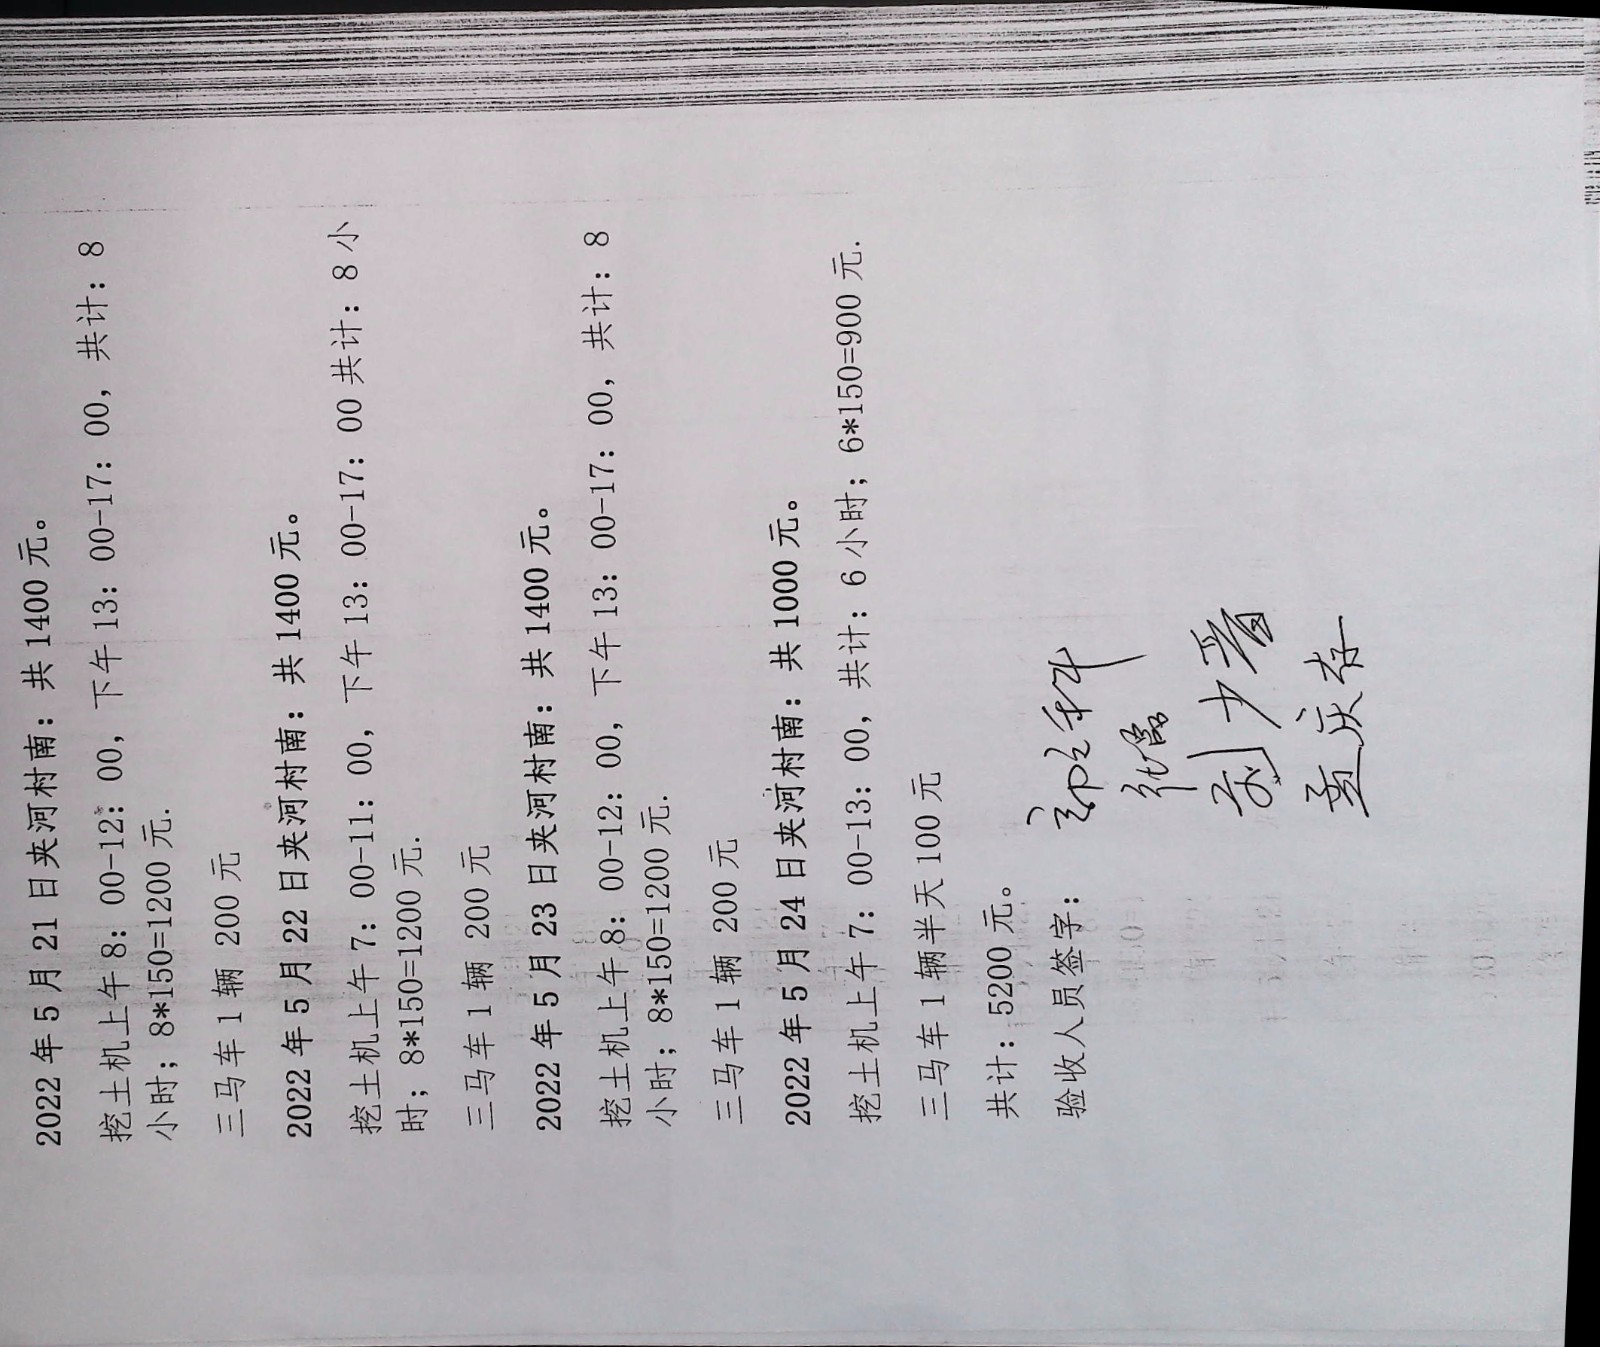 2022 年 5 月 21 日夹河村南：共 1400 元。
挖土机上午 8：00-12：00，下午 13：00-17：00，共计：8
小时；8*150=1200 元.
三马车 1 辆 200 元
2022 年 5 月 22 日夹河村南：共 1400 元。
挖土机上午 7：00-11：00，下午 13：00-17：00 共计：8 小
时；8*150=1200 元.
三马车 1 辆 200 元
2022 年 5 月 23 日夹河村南：共 1400 元。
挖土机上午 8：00-12：00，下午 13：00-17：00，共计：8
小时；8*150=1200 元.
三马车 1 辆 200 元
2022 年 5 月 24 日夹河村南：共 1000 元。
挖土机上午 7：00-13：00，共计：6 小时；6*150=900 元.
三马车 1 辆半天 100 元
共计：5200 元。
验收人员签字：
张磊
刘少晋
孟庆存